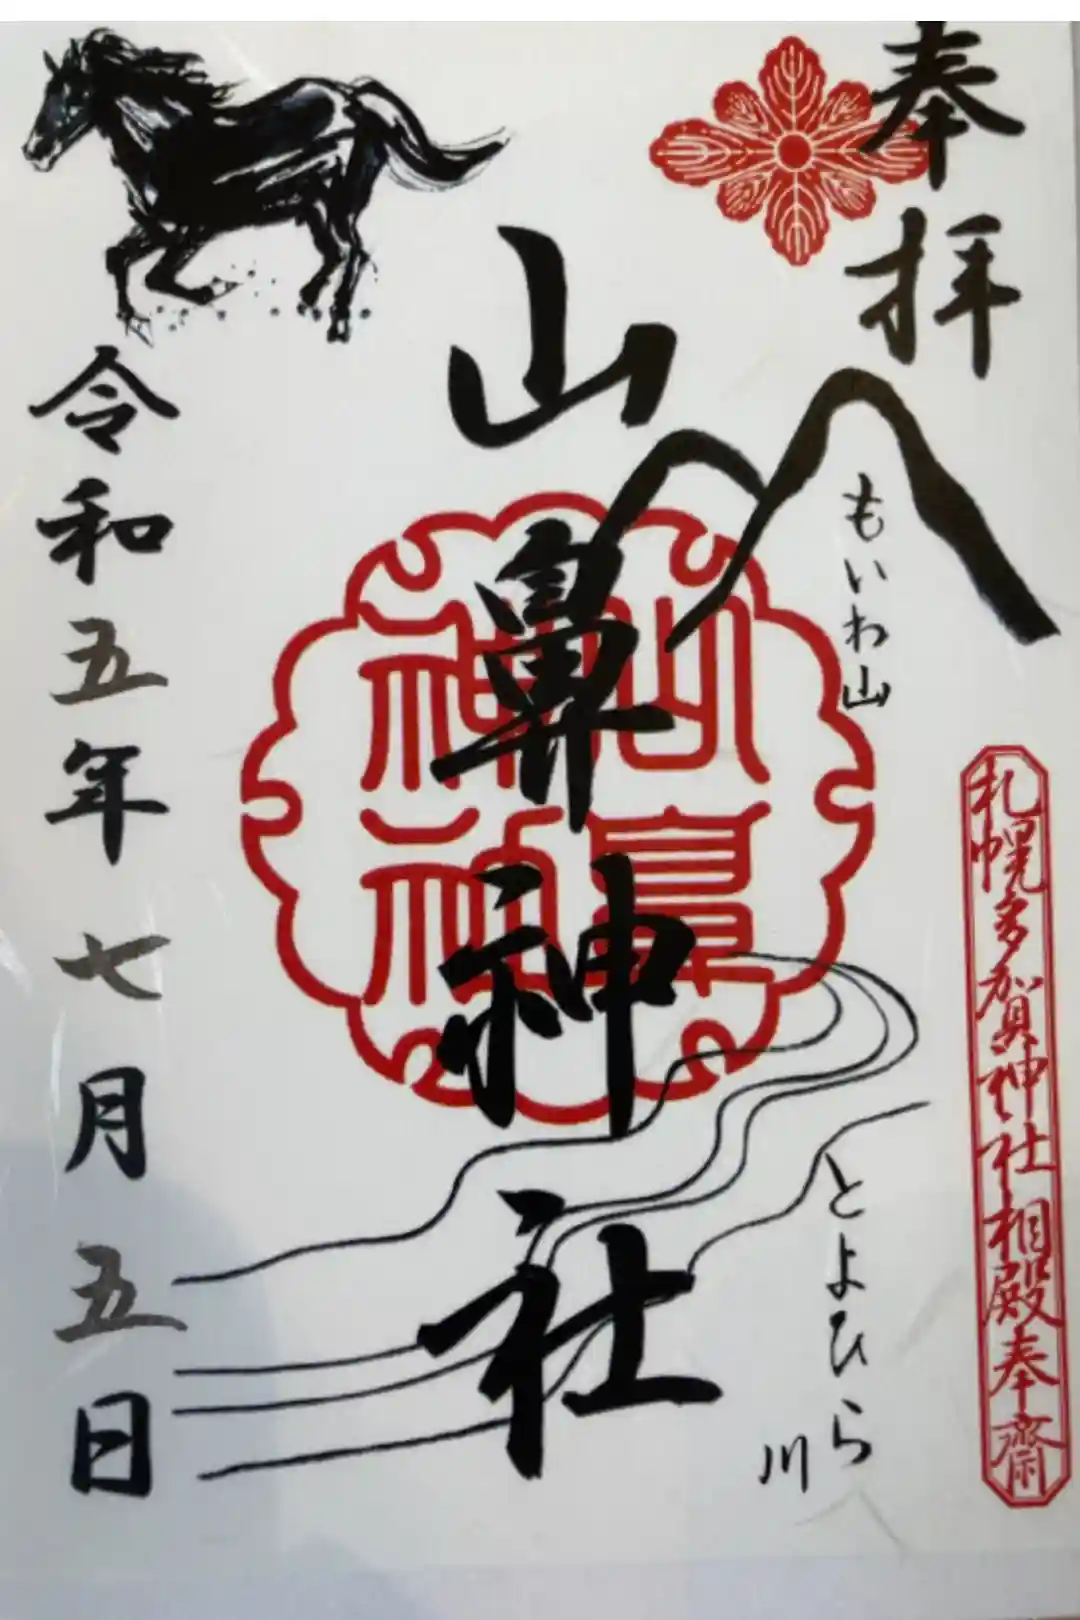 奉拝
もいわ山
札幌多賀神社相殿奉齋
山鼻神社
山鼻
神社
とよひら川
令和五年七月五日